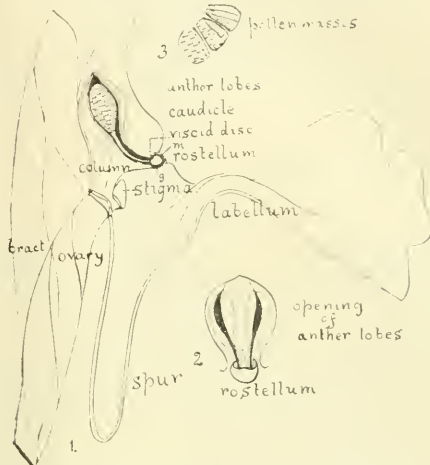 pollen masses
3
anthor lobes
caudicle
viscid disc
m
rostellum
column
g
stigma
labellum
bract
ovary
opening
of
anther lobes
2
spur
rostellum
1.